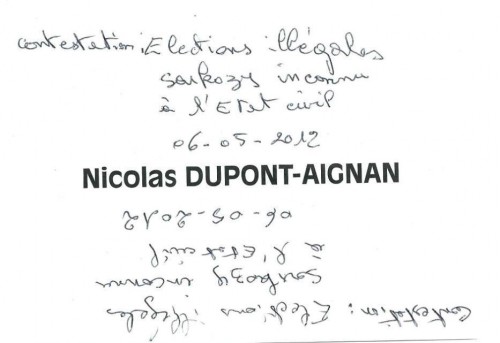 contestation: Elections illégales
sarkozy inconnu
à l'Etat civil
06-05-2012
Nicolas DUPONT-AIGNAN
contestation: Elections illégales
sarkozy inconnu
à l'Etat civil
06-05-2012